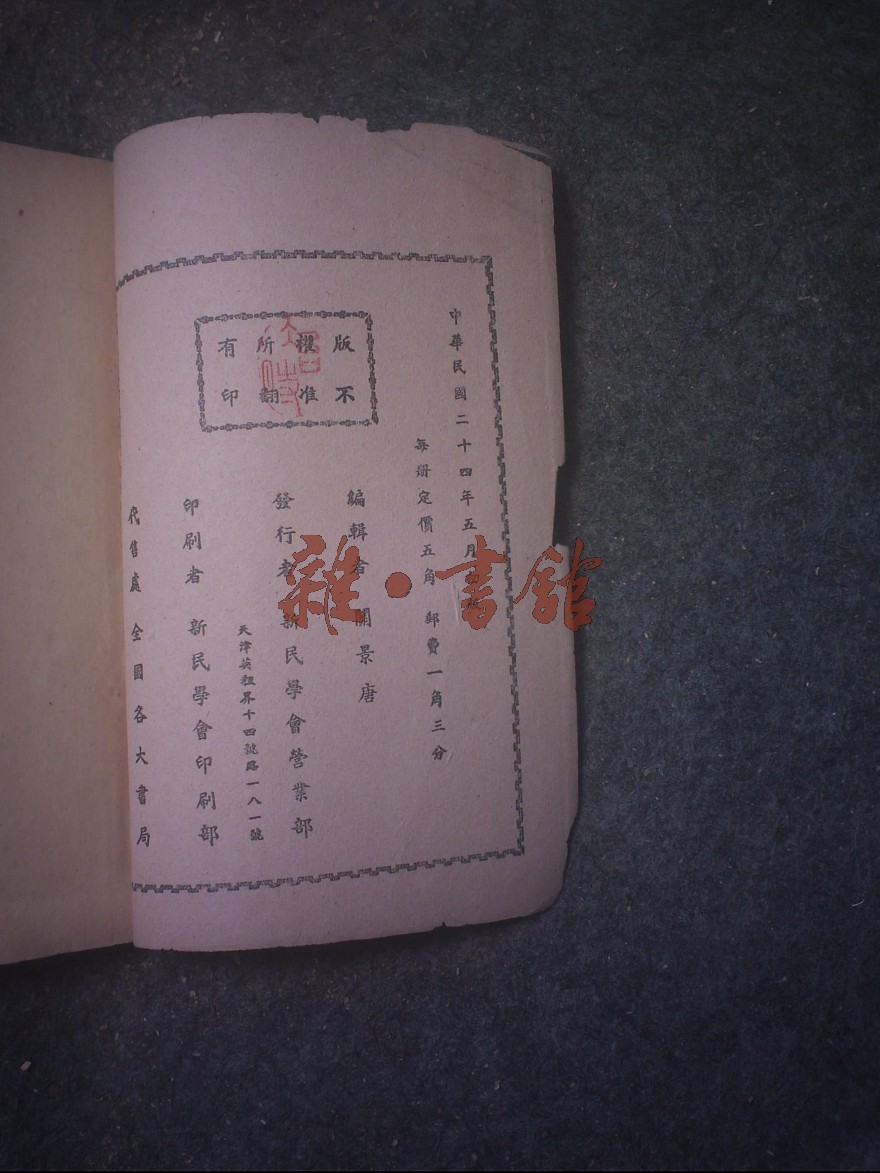 中華民國二十四年五月
每册定價五角 郵費一角三分
版權所有
不准翻印
編輯者 關景唐
發行者 新民學會營業部
天津英租界十四號路一八一號
印刷者 新民學會印刷部
代售處 全國各大書局
雜·書館